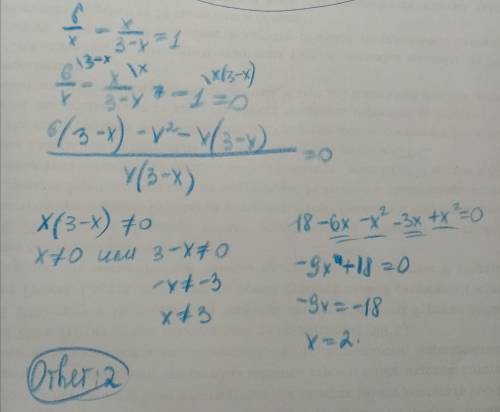 6/x - x/3-x = 1
6\3-x/x - x\x/3-x - 1\x(3-x) = 0
6(3-x) - x² - x(3-x)/x(3-x) = 0
x(3-x) ≠ 0
x ≠ 0 или 3-x ≠ 0
-x ≠ -3
x ≠ 3
18 - 6x - x² - 3x + x² = 0
-9x + 18 = 0
-9x = -18
x = 2.
Ответ: 2